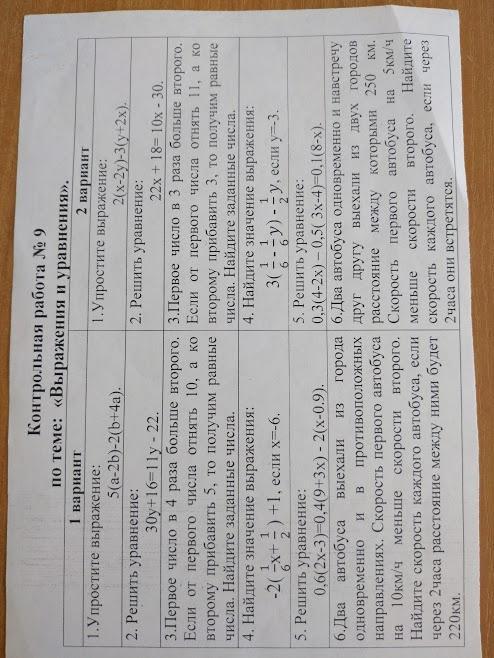 Контрольная работа № 9
по теме: «Выражения и уравнения».
1 вариант
1.Упростите выражение:
5(a-2b)-2(b+4a).
2. Решить уравнение:
30y+16=11y - 22.
3.Первое число в 4 раза больше второго.
Если от первого числа отнять 10, а ко
второму прибавить 5, то получим равные
числа. Найдите заданные числа.
4. Найдите значение выражения:
-2(1/6x+1/2) +1, если x=-6.
5. Решить уравнение:
0,6(2x-3)=0,4(9+3x) - 2(x-0,9).
6.Два автобуса выехали из города
одновременно и в противоположных
направлениях. Скорость первого автобуса
на 10км/ч меньше скорости второго.
Найдите скорость каждого автобуса, если
через 2часа расстояние между ними будет
220км.
2 вариант
1.Упростите выражение:
2(x-2y)-3(y+2x).
2. Решить уравнение:
22x + 18= 10x - 30.
3.Первое число в 3 раза больше второго.
Если от первого числа отнять 11, а ко
второму прибавить 3, то получим равные
числа. Найдите заданные числа.
4. Найдите значение выражения:
3(1/6 - 1/6y) - 1/2y, если y=-3.
5. Решить уравнение:
0,3(4-2x) – 0,5( 3x-4)=0,1(8-x).
6.Два автобуса одновременно и навстречу
друг другу выехали из двух городов
расстояние между которыми 250 км.
Скорость первого автобуса на 5км/ч
меньше скорости второго. Найдите
скорость каждого автобуса, если через
2часа они встретятся.